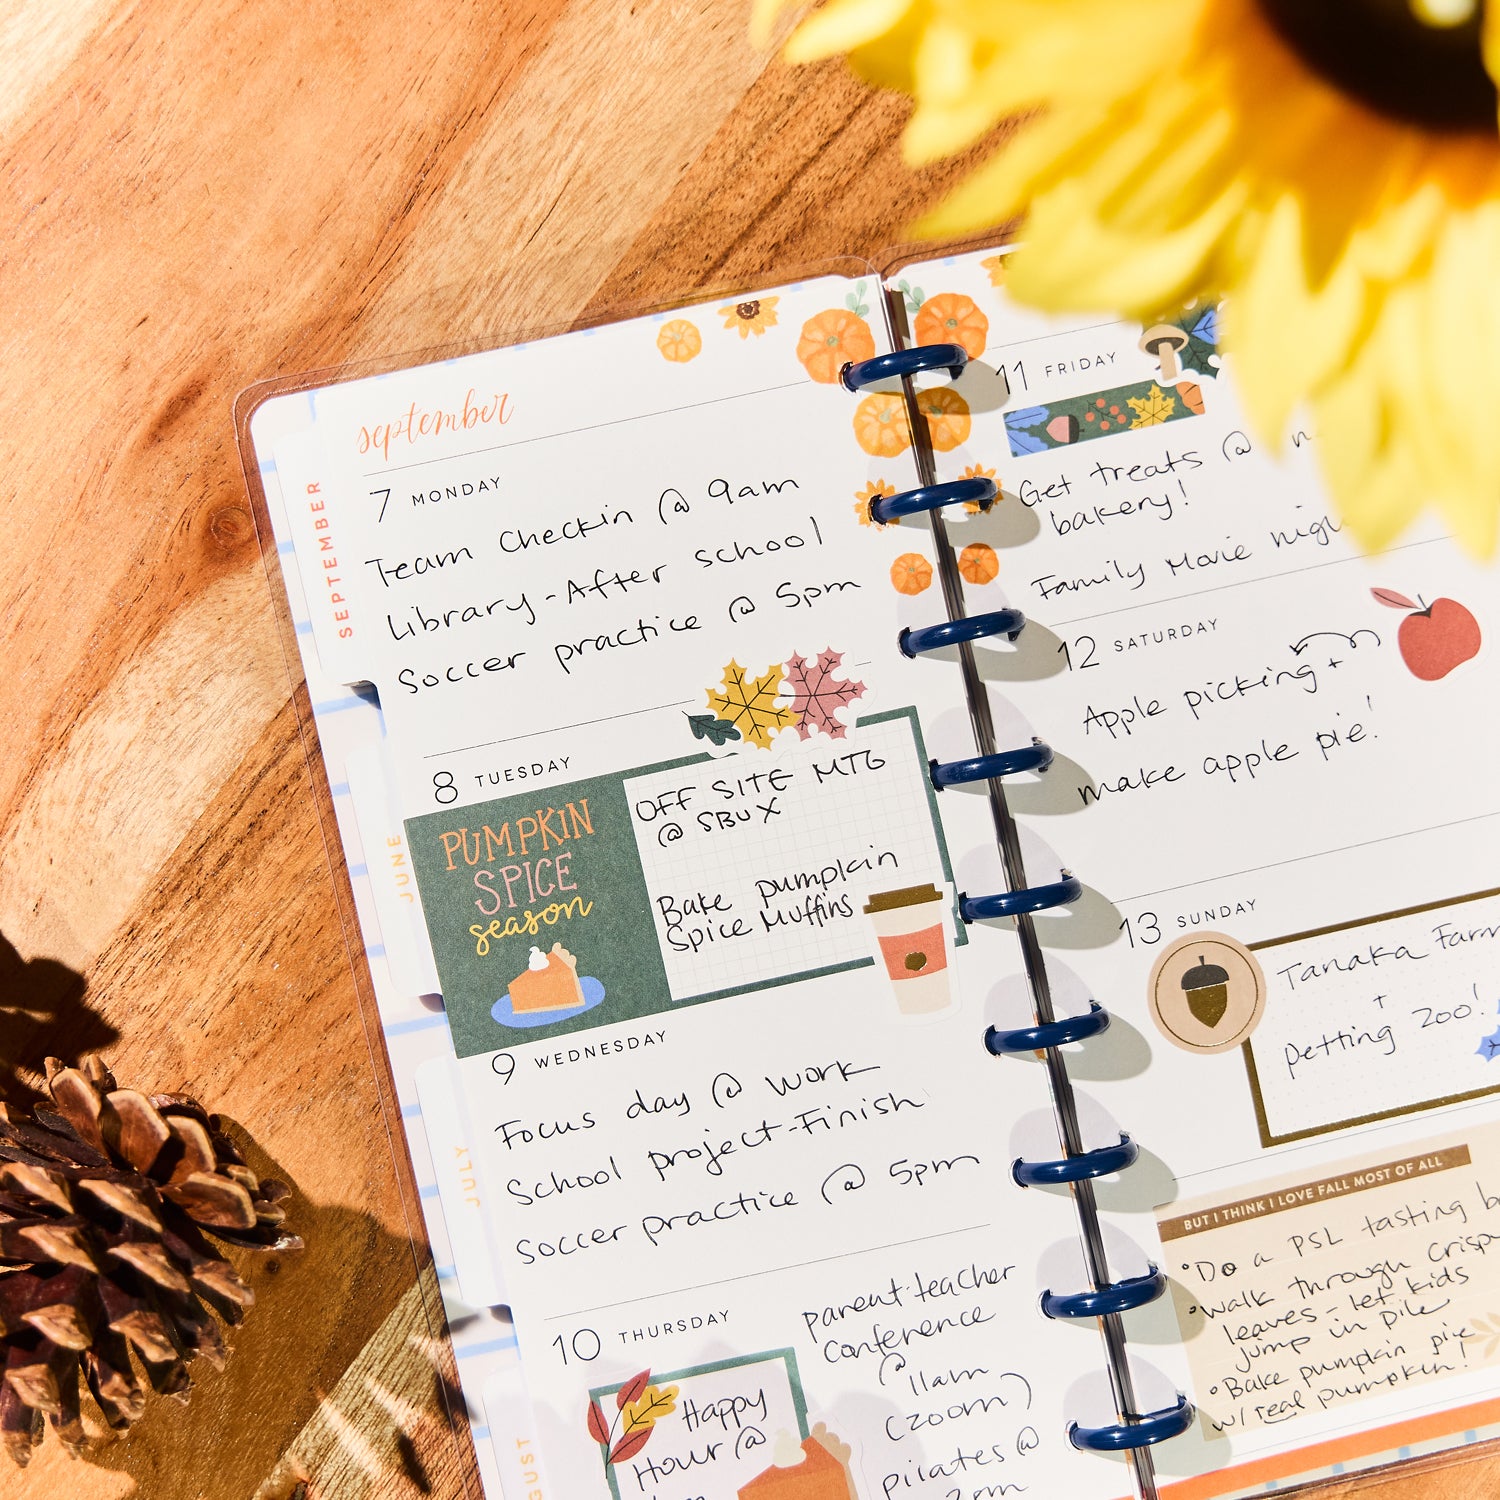 september
7 MONDAY
Team Checkin @ 9am
Library - After school
Soccer practice @ 5pm
8 TUESDAY
PUMPKIN
SPICE
season
OFF SITE MTG
@ SBUX
Bake pumpkin
Spice Muffins
9 WEDNESDAY
Focus day @ work
School project - Finish
Soccer practice @ 5pm
10 THURSDAY
Happy
Hour @
parent-teacher
Conference
@
11am
(zoom)
pilates @
SEPTEMBER
JUNE
JULY
11 FRIDAY
Get treats @
bakery!
Family Movie
12 SATURDAY
Apple picking +
make apple pie!
13 SUNDAY
Tanaka
+
petting zoo!
BUT I THINK I LOVE FALL MOST OF ALL
• Do a PSL tasting
• Walk through
leaves - let kids
jump in pile
• Bake pumpkin pie
w/ real pumpkin!